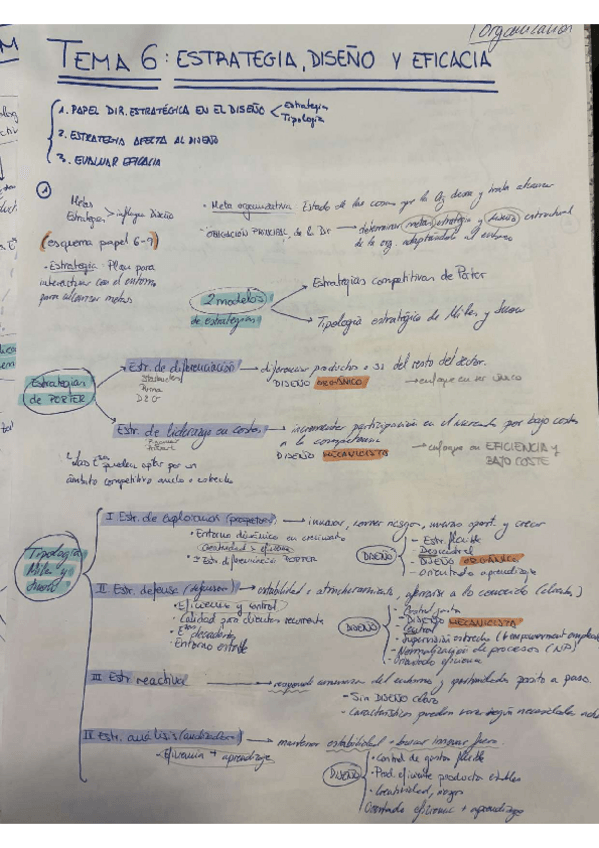 Organización
TEMA 6: ESTRATEGIA, DISEÑO Y EFICACIA
1. PAPEL DIR. ESTRATÉGICA EN EL DISEÑO < Estrategia
Tipología
2. ESTRATEGIA AFECTA AL DISEÑO
3. EVALUAR EFICACIA
1
Metas
Estrategias > influyen Diseño
(esquema papel 6-7)
• Estrategia: Plan para
interactuar con el entorno
para alcanzar metas
• Meta organizativa: Estado de las cosas que la Og desea y trata alcanzar
OBLIGACIÓN PRINCIPAL de la Dir → determinar metas, estrategia y diseño estructural
de la org. adaptándola al entorno
2 modelos
de estrategias
Estrategias competitivas de Porter
Tipología estratégica de Miles y Snow
Estrategias
de PORTER
Estr. de diferenciación → diferenciar productos o ss del resto del sector.
Starbucks
Puma
DISEÑO ORGÁNICO → enfoque en ser único
Estr. de liderazgo en costes → incrementar participación en el mercado por bajo coste
a la competencia
DISEÑO MECANICISTA → enfoque en EFICIENCIA y
BAJO COSTE
Las Esas pueden optar por un
ámbito competitivo ancho o estrecho
Tipología
Miles y
Snow
I Estr. de exploración (prospectora) → innovar, correr riesgos, nuevas oport. y crecer
• Entorno dinámico en crecimiento
Creatividad > eficiencia
• Estr diferenciación PORTER
DISEÑO
- Estr. flexible
- Descentral
- DISEÑO ORGÁNICO
- Orientado aprendizaje
II Estr. defensa (defensora) → estabilidad o atrincheramiento, aferrarse a lo conocido
• Eficiencia y control
• Calidad para clientes recurrentes
• Esas decadentes
• Entorno estable
DISEÑO
- Control gastos
- DISEÑO MECANICISTA
- Central
- Supervisión estrecha
- Normalización de procesos (NP)
- Orientado eficiencia
III Estr reactiva → responde amenazas del entorno y oportunidades poquito a poco.
- Sin DISEÑO claro
- Características pueden variar según necesidades
IV Estr. análisis (analizadora) → mantener estabilidad + buscar innovar fuera
- Eficiencia + aprendizaje
DISEÑO
• Control de gastos flexible
• Prod. eficiente productos estables
• Creatividad, riesgos
Orientada eficiencia + aprendizaje